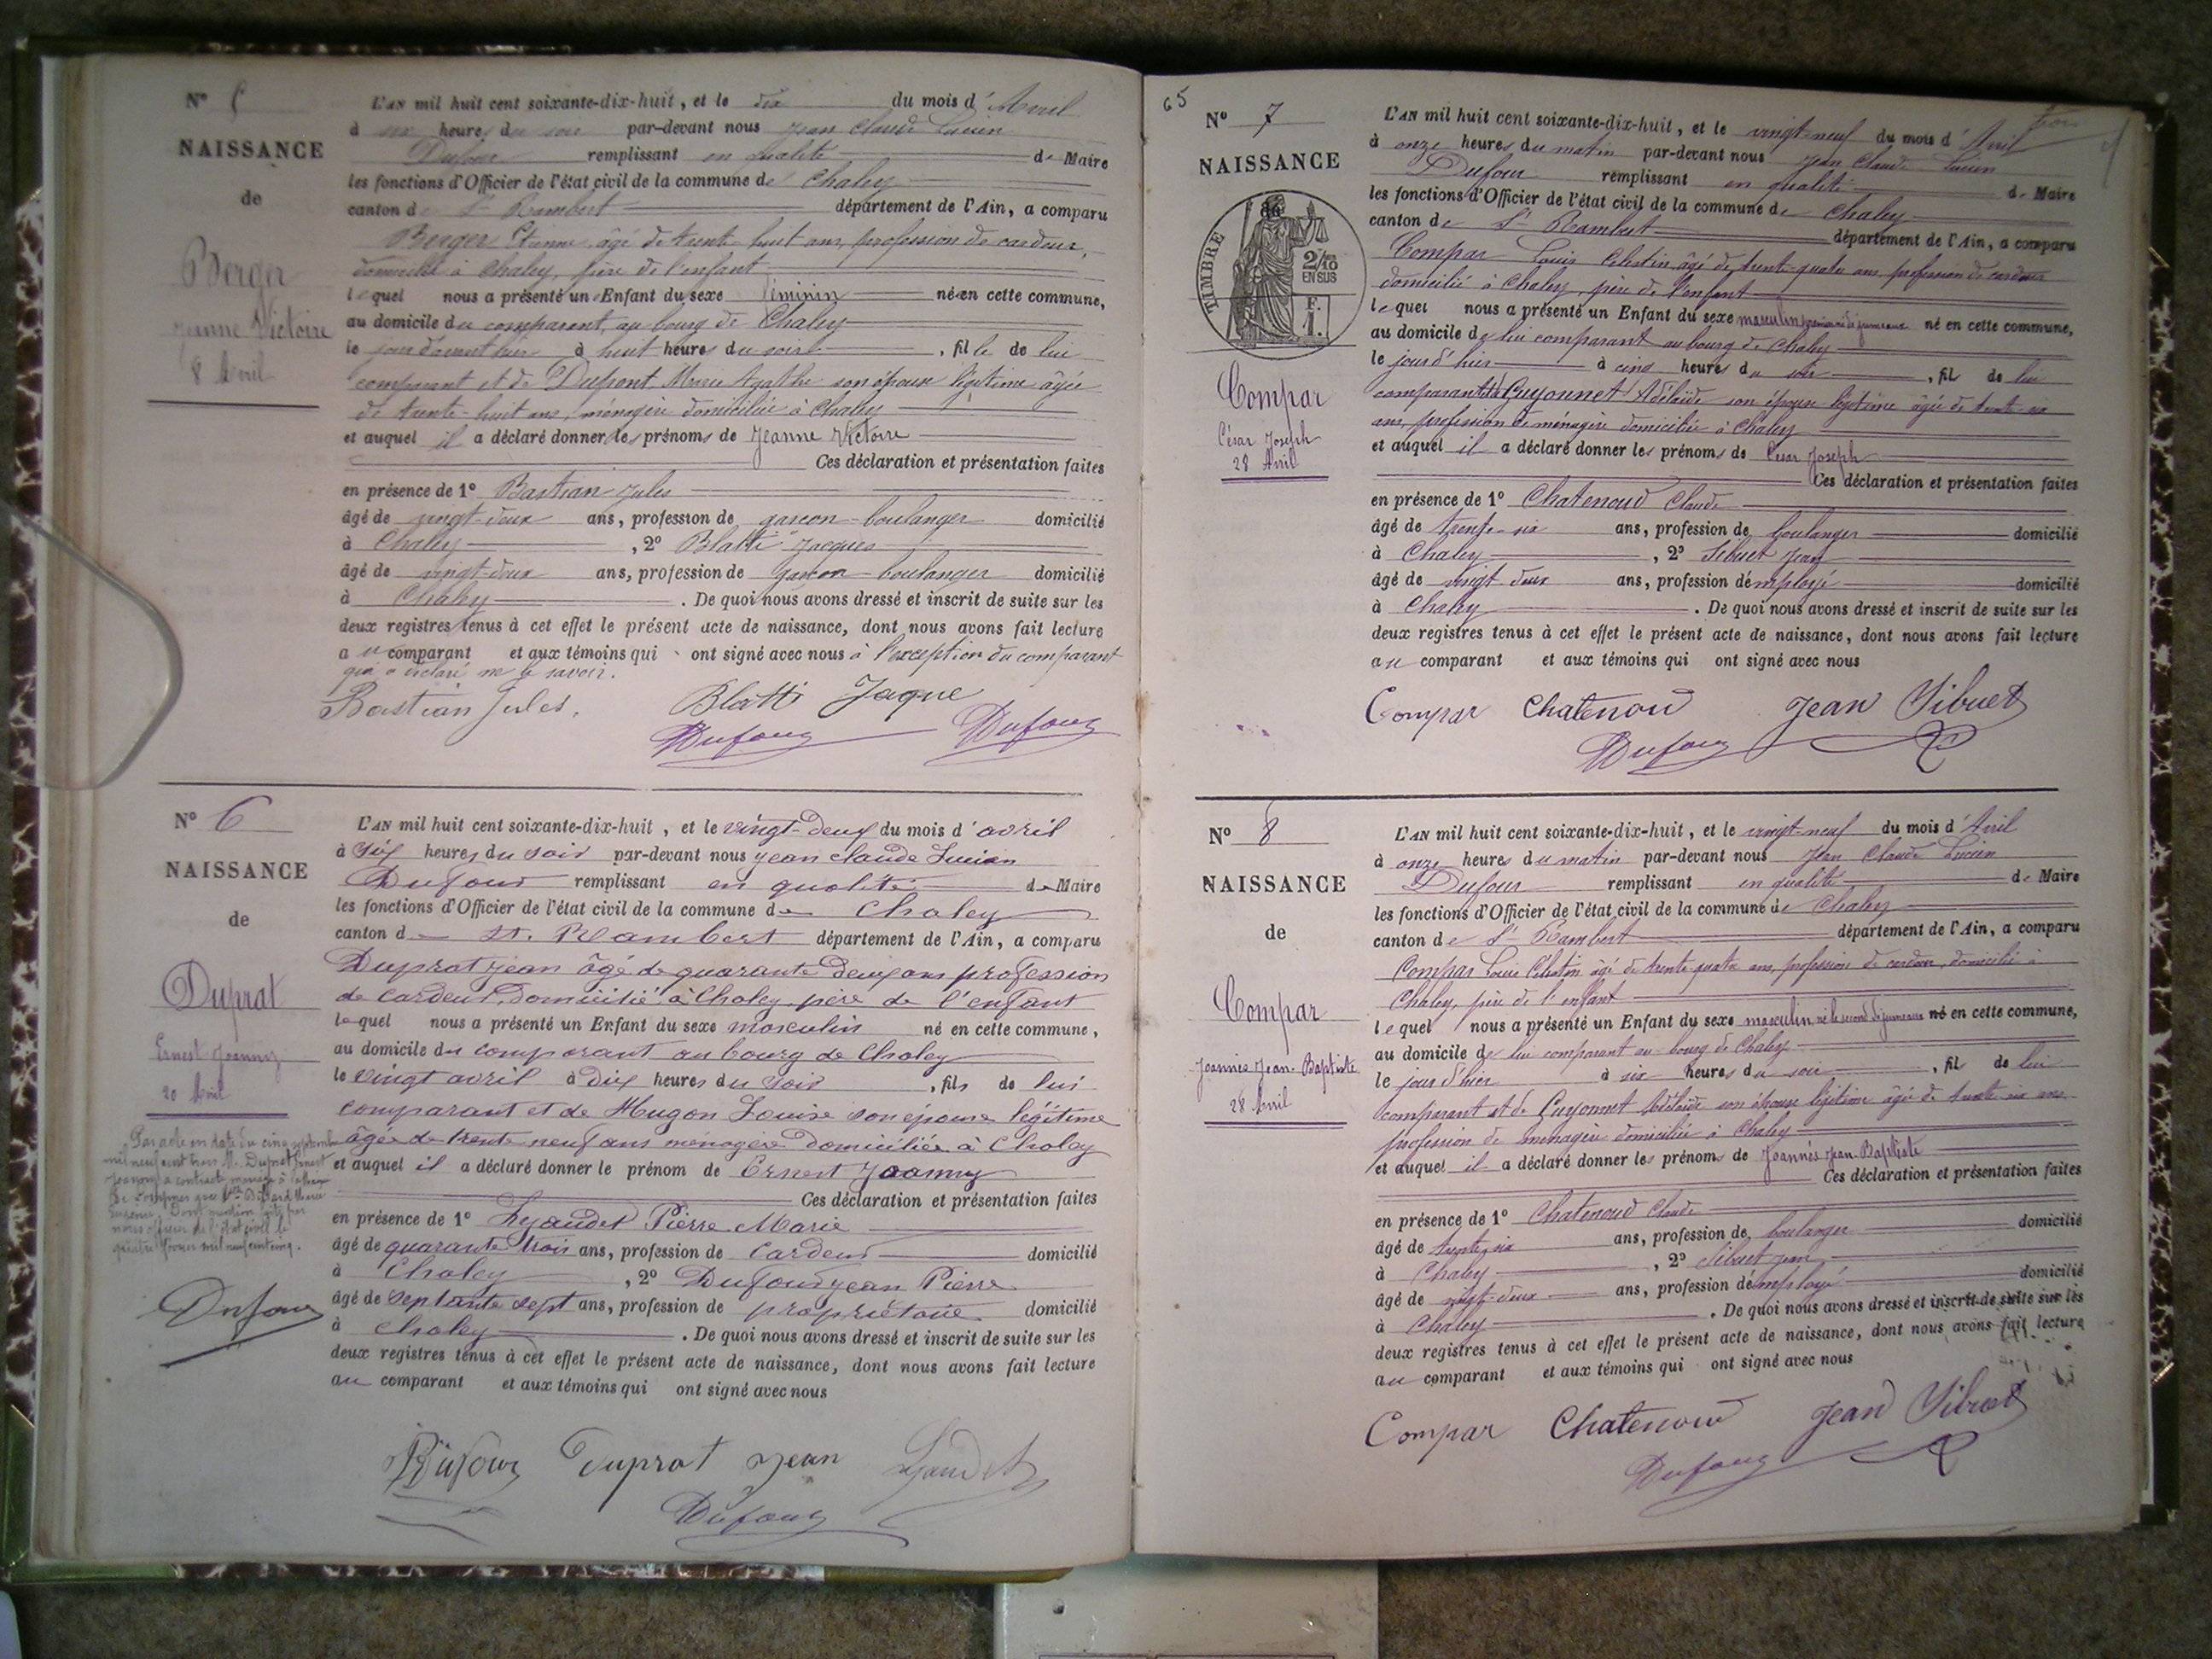 N° 5
NAISSANCE
de
Berger
Jeanne Victoire
8 Avril
L'AN mil huit cent soixante-dix-huit, et le dix du mois d'Avril
à six heures du soir par-devant nous Jean Claude Lucien
Dufour remplissant en qualité de Maire
les fonctions d'Officier de l'état civil de la commune de Chaley
canton de St Rambert département de l'Ain, a comparu
Berger Etienne âgé de trente-huit ans, profession de cardeur,
domicilié à Chaley, père de l'enfant
lequel nous a présenté un Enfant du sexe féminin né en cette commune,
au domicile du comparant, au bourg de Chaley
le jour d'avant hier à huit heures du soir, fille de lui
comparant et de Dupont Marie Agathe son épouse légitime âgée
de trente-huit ans, ménagère domiciliée à Chaley
et auquel il a déclaré donner les prénoms de Jeanne Victoire
Ces déclaration et présentation faites
en présence de 1° Bastian Jules
âgé de vingt-deux ans, profession de garçon-boulanger domicilié
à Chaley, 2° Blatti Jacques
âgé de vingt-deux ans, profession de garçon-boulanger domicilié
à Chaley. De quoi nous avons dressé et inscrit de suite sur les
deux registres tenus à cet effet le présent acte de naissance, dont nous avons fait lecture
au comparant et aux témoins qui ont signé avec nous à l'exception du comparant
qui a déclaré ne le savoir.
Bastian Jules. Blatti Jaque
Dufour Dufour
N° 6
NAISSANCE
de
Duprat
Ernest Joanny
20 Avril
Par acte en date du cinq septembre
mil neuf cent trois M. Duprat Ernest
Joanny a contracté mariage à
avec
Dont mention faite par
nous officier de l'état civil le
quatre février mil neuf cent cinq.
Dufour
L'AN mil huit cent soixante-dix-huit, et le vingt-deux du mois d'avril
à six heures du soir par-devant nous jean claude Lucien
Dufour remplissant en qualité de Maire
les fonctions d'Officier de l'état civil de la commune de Chaley
canton de St. Rambert département de l'Ain, a comparu
Duprat jean âgé de quarante deux ans profession
de cardeur, domicilié à Chaley père de l'enfant
lequel nous a présenté un Enfant du sexe masculin né en cette commune,
au domicile du comparant au bourg de Chaley
le vingt avril à dix heures du soir, fils de lui
comparant et de Hugon Louise son épouse légitime
âgée de trente neuf ans ménagère domiciliée à Chaley
et auquel il a déclaré donner le prénom de Ernest Joanny
Ces déclaration et présentation faites
en présence de 1° Lyaudet Pierre Marie
âgé de quarante trois ans, profession de Cardeur domicilié
à Chaley, 2° Dufour jean Pierre
âgé de septante sept ans, profession de propriétaire domicilié
à Chaley. De quoi nous avons dressé et inscrit de suite sur les
deux registres tenus à cet effet le présent acte de naissance, dont nous avons fait lecture
au comparant et aux témoins qui ont signé avec nous
Dufour Duprat Jean Lyaudet
Dufour
65
N° 7
NAISSANCE
TIMBRE
2/10
EN SUS
F.
1.
Compar
César Joseph
28 Avril
L'AN mil huit cent soixante-dix-huit, et le vingt-neuf du mois d'Avril
à onze heures du matin par-devant nous Jean Claude Lucien
Dufour remplissant en qualité de Maire
les fonctions d'Officier de l'état civil de la commune de Chaley
canton de St Rambert département de l'Ain, a comparu
Compar Louis Célestin âgé de trente-quatre ans, profession de cardeur
domicilié à Chaley, père de l'enfant
lequel nous a présenté un Enfant du sexe masculin, premier né de jumeaux né en cette commune,
au domicile de lui comparant au bourg de Chaley
le jour d'hier à cinq heures du soir, fil de lui
comparant et de Guyonnet Adélaïde son épouse légitime âgée de trente-six
ans, profession de ménagère domiciliée à Chaley
et auquel il a déclaré donner les prénoms de César Joseph
Ces déclaration et présentation faites
en présence de 1° Chatenoud Claude
âgé de trente-six ans, profession de boulanger domicilié
à Chaley, 2° Sibuet Jean
âgé de vingt-deux ans, profession d'employé domicilié
à Chaley. De quoi nous avons dressé et inscrit de suite sur les
deux registres tenus à cet effet le présent acte de naissance, dont nous avons fait lecture
au comparant et aux témoins qui ont signé avec nous
Compar Chatenoud Jean Sibuet
Dufour
N° 8
NAISSANCE
de
Compar
Joannès Jean-Baptiste
28 Avril
L'AN mil huit cent soixante-dix-huit, et le vingt-neuf du mois d'Avril
à onze heures du matin par-devant nous Jean Claude Lucien
Dufour remplissant en qualité de Maire
les fonctions d'Officier de l'état civil de la commune de Chaley
canton de St Rambert département de l'Ain, a comparu
Compar Louis Célestin âgé de trente quatre ans, profession de cardeur, domicilié à
Chaley, père de l'enfant
lequel nous a présenté un Enfant du sexe masculin, né le second de jumeaux né en cette commune,
au domicile de lui comparant au bourg de Chaley
le jour d'hier à six heures du soir, fil de lui
comparant et de Guyonnet Adélaïde son épouse légitime âgée de trente-six ans
profession de ménagère domiciliée à Chaley
et auquel il a déclaré donner les prénoms de Joannès Jean-Baptiste
Ces déclaration et présentation faites
en présence de 1° Chatenoud Claude
âgé de trente-six ans, profession de boulanger domicilié
à Chaley, 2° Sibuet Jean
âgé de vingt-deux ans, profession d'employé domicilié
à Chaley. De quoi nous avons dressé et inscrit de suite sur les
deux registres tenus à cet effet le présent acte de naissance, dont nous avons fait lecture
au comparant et aux témoins qui ont signé avec nous
Compar Chatenoud Jean Sibuet
Dufour